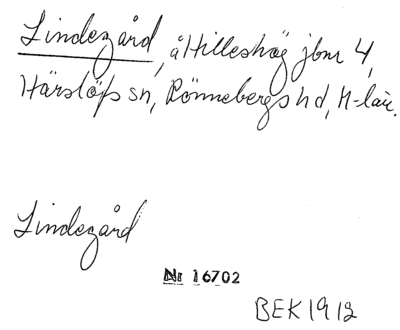 Lindegård, å Hilleshög jbnr 4,
Härslöfs sn, Rönnebergs hd, M-län.
Lindegård
Nr 16702
BEK 1912